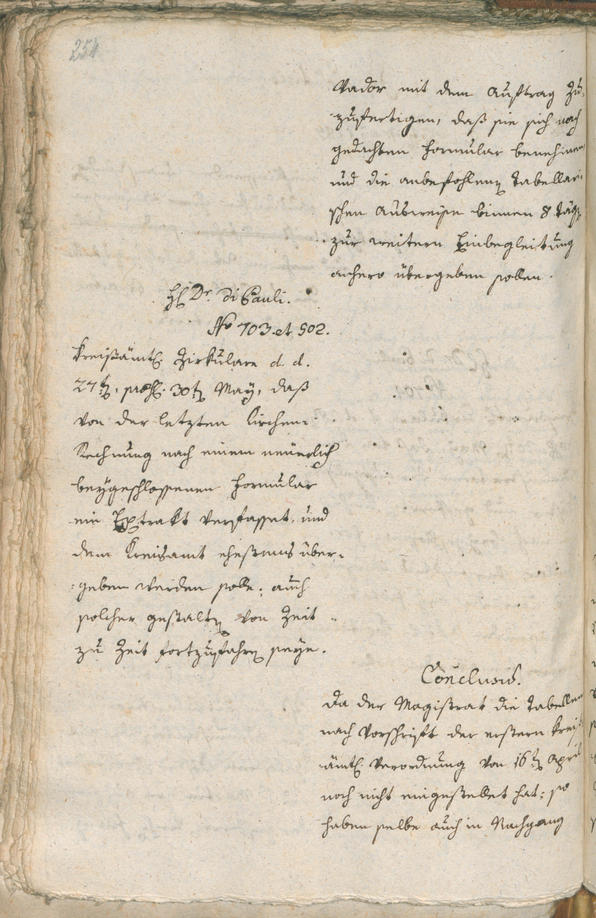 254
vador mit dem Auftrag zu-
zufertigen, daß sie sich nach
gedachten Formular benehmen
und die anbefohlene Tabellari-
schen Ausweise binnen 8 Täg
zur weitern Einbegleitung
anhero übergeben sollen.
H Dr. di Pauli.
No 703 et 502.
Kreisämtl. Zirkulare d. d.
27t, 30t May, daß
von der letzten Kirchen-
Rechnung nach einem neüerlich
beygeschlossenen Formular
ein Extrakt verfasset, und
dem Kreisamt ehestens über-
geben werden solle; auch
solcher gestalten von Zeit
zu Zeit fortzufahren seye.
Conclusum.
Da der Magistrat die Tabellen
nach Vorschrift der erstern kreis-
ämtl. Verordnung von 16t April
noch nicht eingestellet hat; so
haben selbe auch in Nachgang